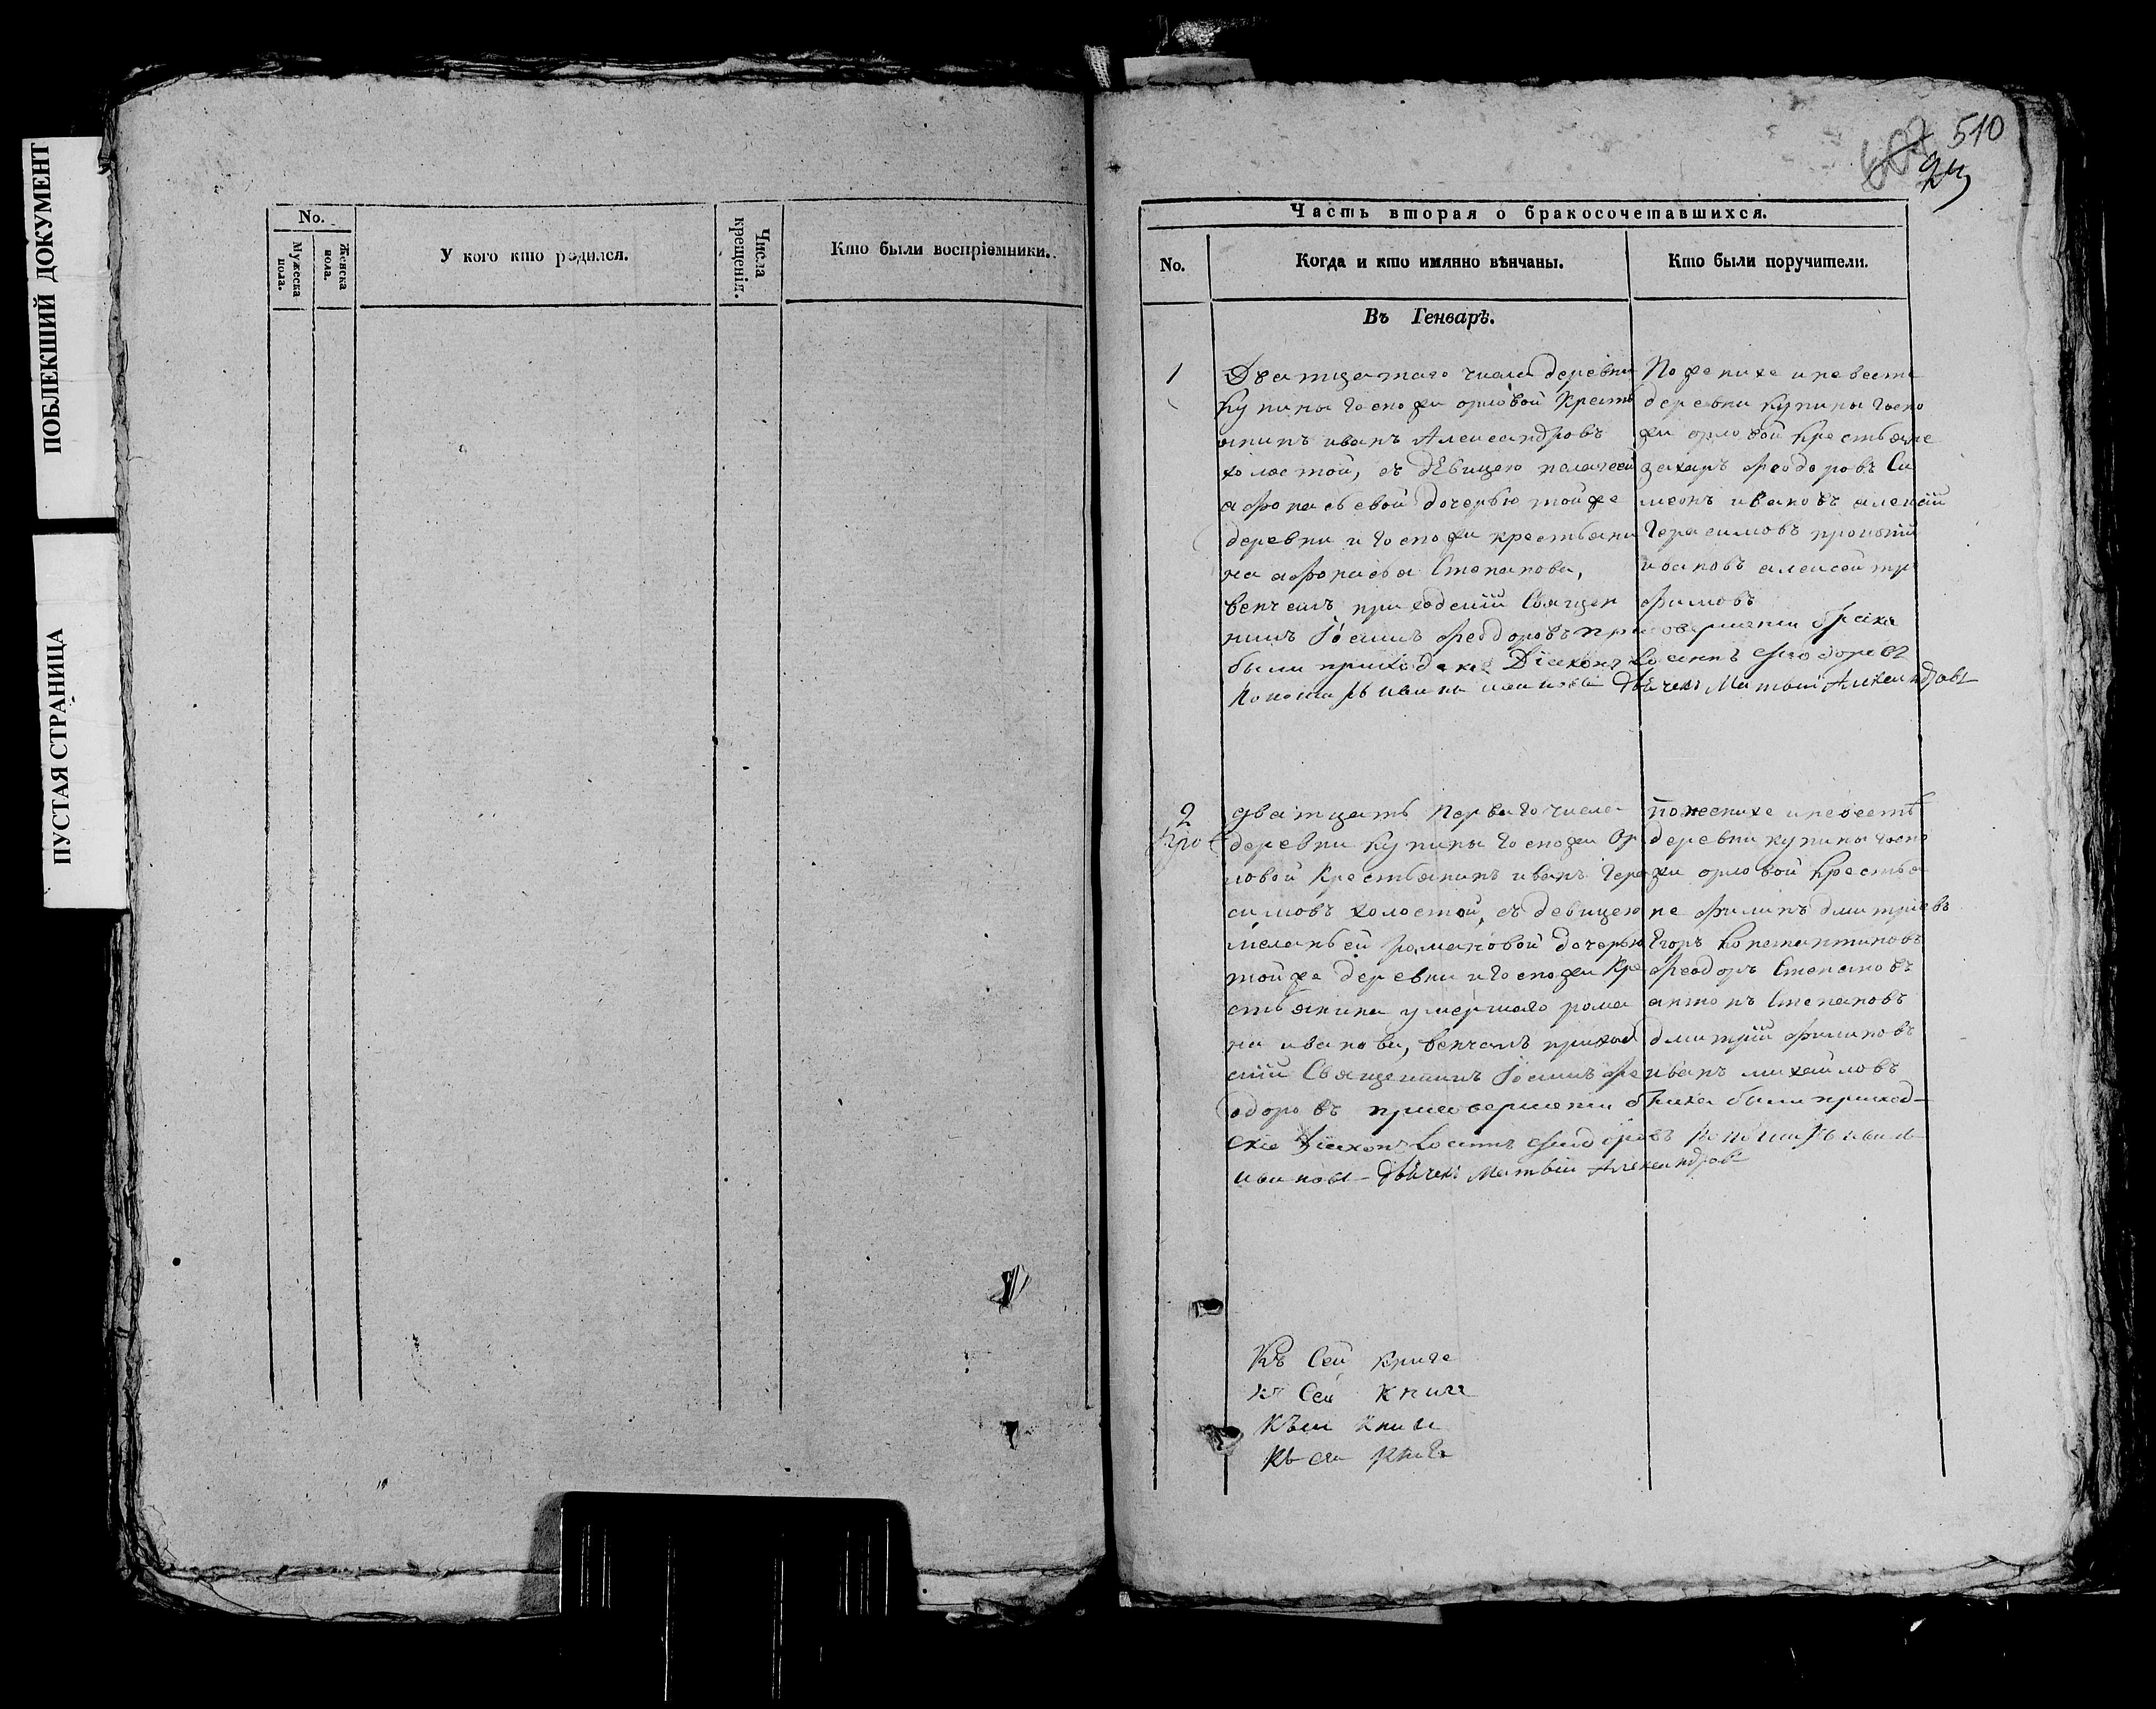 ПОБЛЕКШИЙ ДОКУМЕНТ
ПУСТАЯ СТРАНИЦА
No.
Мужеска пола.
Женска пола.
У кого кто родился.
Числа крещенія.
Кто были воспріемники.
510
Часть вторая о бракосочетавшихся.
No.
Когда и кто имянно вѣнчаны.
Кто были поручители.
Въ Генварѣ.
1
Дватцатаго числа деревни
купины Госпожи орловой Кресть
янинъ иванъ Александровъ
холостой, съ дѣвицею пелагеей
афонасьевой дочерью тойже
деревни и Госпожи крестьяни
на афонасья Степанова,
венчалъ приходскій Священ
никъ Іоаннъ феодоровъ при совершени брака
были приходскіе Діаконъ Іоаннъ
Понамарь Матвий Александровъ
По женихе и невесте
деревни купины Госпо
жи орловой Крестьяне
захаръ феодоровъ Си
меонъ ивановъ алексій
Герасимовъ
алексей тро
фимовъ
2
дватцать Перваго числа
деревни купины Госпожи Ор
ловой Крестьянинъ иванъ Гера
симовъ холостой, съ девицею
меланьей романовой дочерью
тойже деревни и Госпожи Кре
стьянина умершаго рома
на иванова, венчалъ приход
скій Священникъ Іоаннъ фе
одоровъ при совершени брака были приход-
скіе Діаконъ Іоаннъ Понамарь
Матвій Александровъ
По женихе и невестѣ
деревни купины Госпо
жи орловой Крестья
не филипъ дмитріевъ
Егоръ Константиновъ
феодоръ Степановъ
антонъ Степановъ
дмитрій филиповъ
иванъ михайловъ
Къ Сей книге
къ Сей книге
Къ сей книге